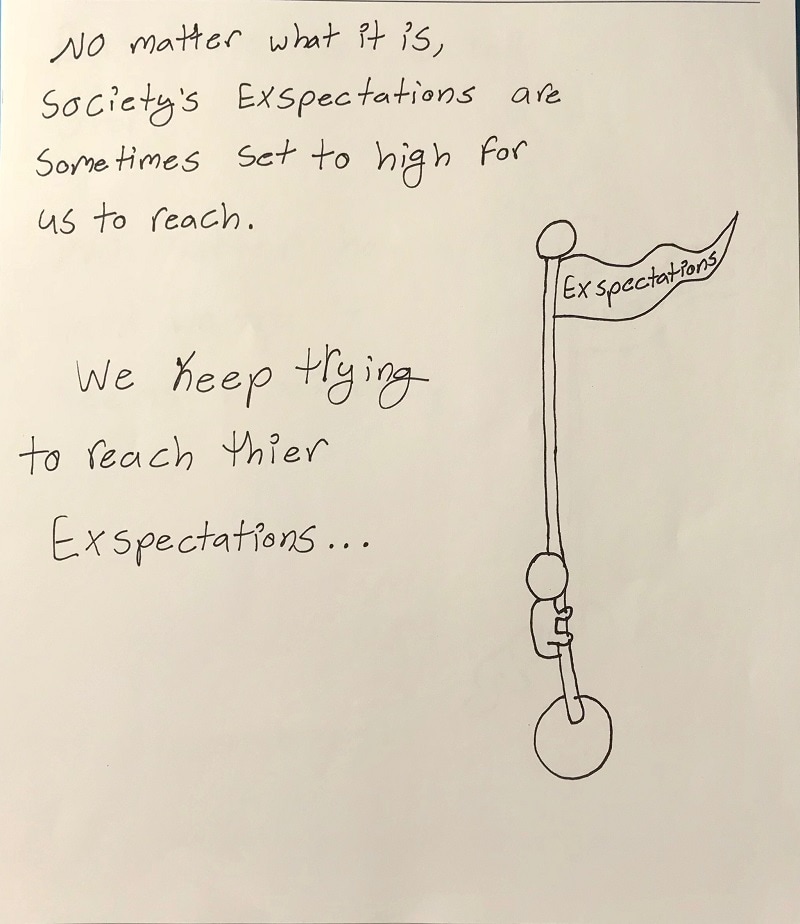 No matter what it is,
Society's Exspectations are
Sometimes set to high for
us to reach.
Exspectations
We keep trying
to reach thier
Exspectations...